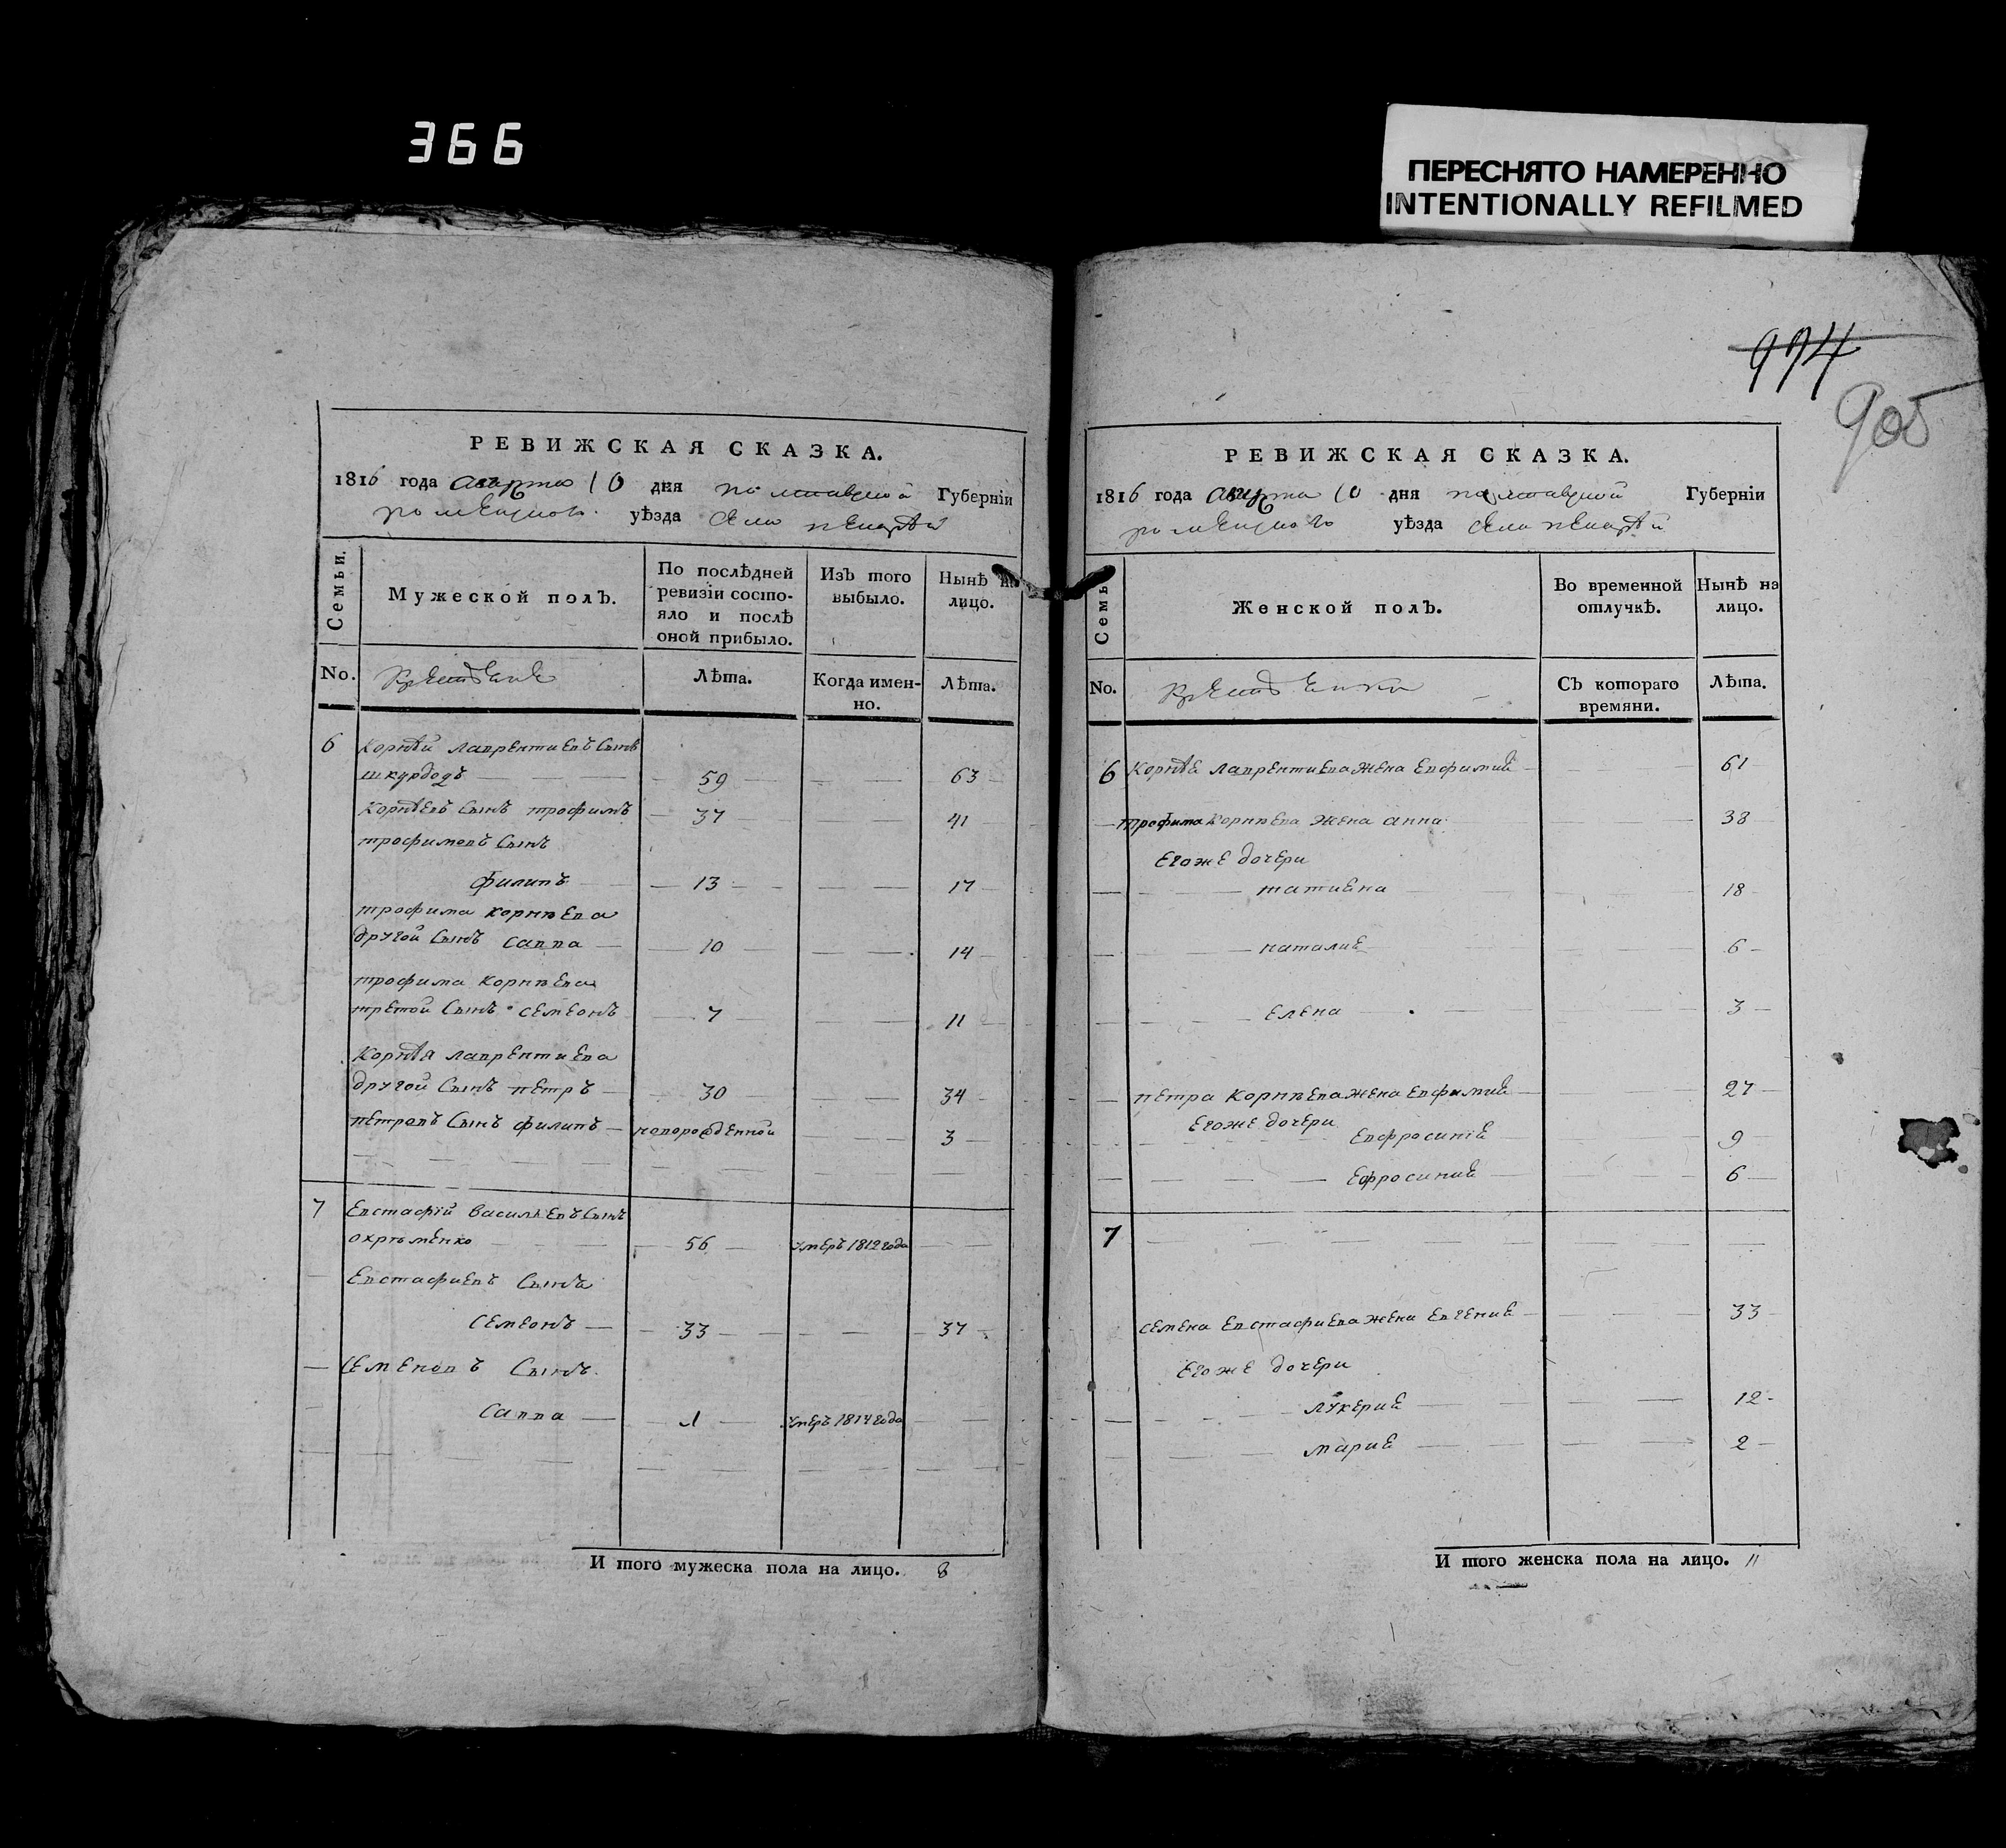 366
ПЕРЕСНЯТО НАМЕРЕННО
INTENTIONALLY REFILMED
974
905
РЕВИЖСКАЯ СКАЗКА.
1816 года марта 10 дня полтавской Губерніи
роменского уѣзда села
Семьи.
Мужеской полъ.
По послѣдней ревизіи состояло и послѣ оной прибыло.
Изъ того выбыло.
Нынѣ на лицо.
No.
Крестьяне
Лѣта.
Когда именно.
Лѣта.
6 Корнѣй лаврентиевъ Сынъ
шкурдодъ 59 63
Корнѣевъ Сынъ трофимъ 37 41
трофимовъ Сынъ
филипъ 13 17
трофима корнѣева
другой Сынъ Савва 10 14
трофима корнѣева
третой Сынъ семеонъ 7 11
Корнѣя лаврентиева
другой Сынъ петръ 30 34
петровъ Сынъ филипъ новорожденной 3
7 Евстафій васильевъ Сынъ
охрѣменко 56 умеръ 1812 года
Евстафиевъ Сынъ
семеонъ 33 37
семеновъ Сынъ
Савва 1 умеръ 1814 года
И того мужеска пола на лицо. 8
РЕВИЖСКАЯ СКАЗКА.
1816 года марта 10 дня полтавской Губерніи
роменского уѣзда села
Семьи
Женской полъ.
Во временной отлучкѣ.
Нынѣ на лицо.
No.
Крестьянки
Съ котораго времяни.
Лѣта.
6 Корнѣя лаврентиева жена Евфимия 61
трофима корнѣева жена анна 38
Егоже дочери
татияна 18
наталия 6
елена 3
петра корнѣева жена Евфимия 27
Егоже дочери
Евфросинія 9
Ефросиния 6
7
семена Евстафиева жена Евгения 33
Егоже дочери
лукерия 12
мария 2
И того женска пола на лицо. 11